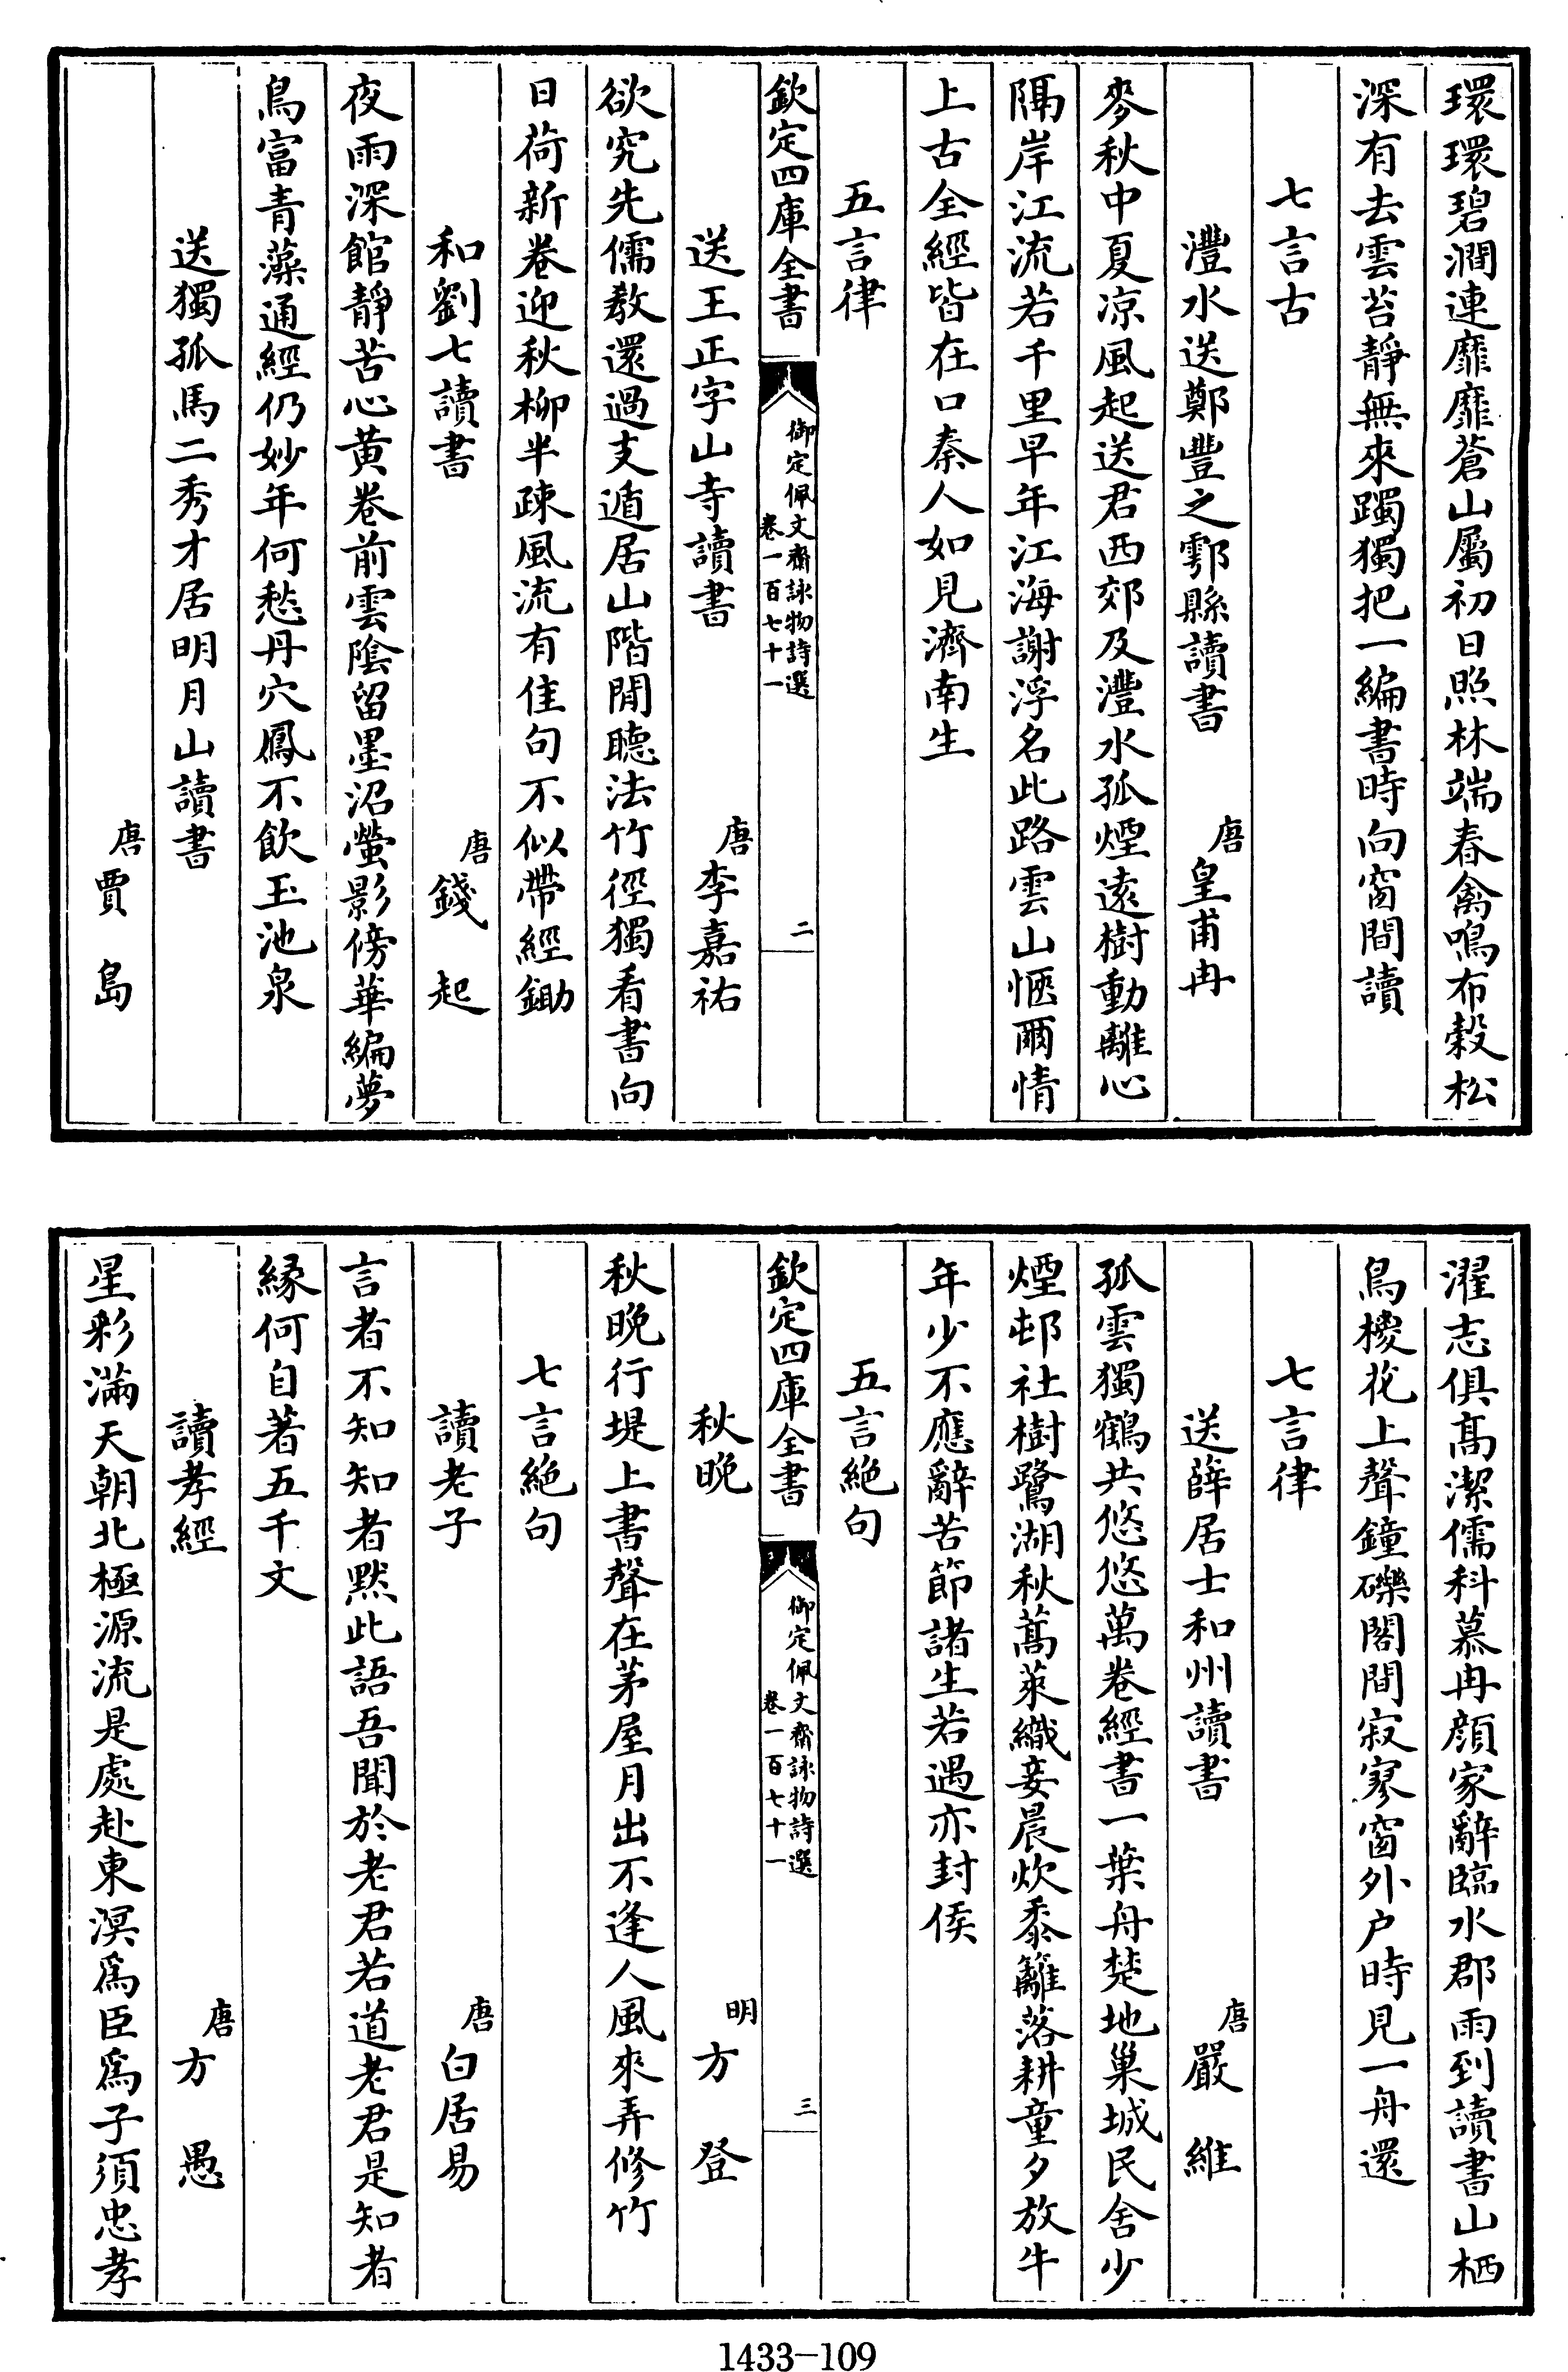 環環碧澗連靡靡蒼山屬初日照林端春禽鳴布榖松
深有去雲苔靜無來躅獨把一編書時向窗間讀
七言古
灃水送鄭豐之鄠縣讀書　唐皇甫冉
麥秋中夏凉風起送君西郊及灃水孤煙遠樹動離心
隔岸江流若千里早年江海謝浮名此路雲山愜爾情
上古全經皆在口秦人如見濟南生
五言律
欽定四庫全書
御定佩文齋詠物詩選
卷一百七十一
二
送王正字山寺讀書　唐李嘉祐
欲究先儒教還過支遁居山階閒聽法竹徑獨看書向
日荷新卷迎秋柳半疎風流有佳句不似帶經鋤
和劉七讀書　唐錢起
夜雨深館靜苦心黄卷前雲陰留墨沼螢影傍華編夢
鳥富青藻通經仍妙年何愁丹穴鳳不飲玉池泉
送獨孤馬二秀才居明月山讀書
唐賈島
濯志俱髙潔儒科慕冉顔家辭臨水郡雨到讀書山栖
鳥椶花上聲鐘礫閣間寂寥窗外户時見一舟還
七言律
送薛居士和州讀書　唐嚴維
孤雲獨鶴共悠悠萬卷經書一葉舟楚地巢城民舍少
煙邨社樹鷺湖秋蒿萊織妾晨炊黍籬落耕童夕放牛
年少不應辭苦節諸生若遇亦封侯
五言絶句
欽定四庫全書
御定佩文齋詠物詩選
卷一百七十一
三
秋晚　明方登
秋晚行堤上書聲在茅屋月出不逢人風來弄修竹
七言絶句
讀老子　唐白居易
言者不知知者黙此語吾聞於老君若道老君是知者
緣何自著五千文
讀孝經　唐方愚
星彩滿天朝北極源流是處赴東溟爲臣爲子須忠孝
1433-109